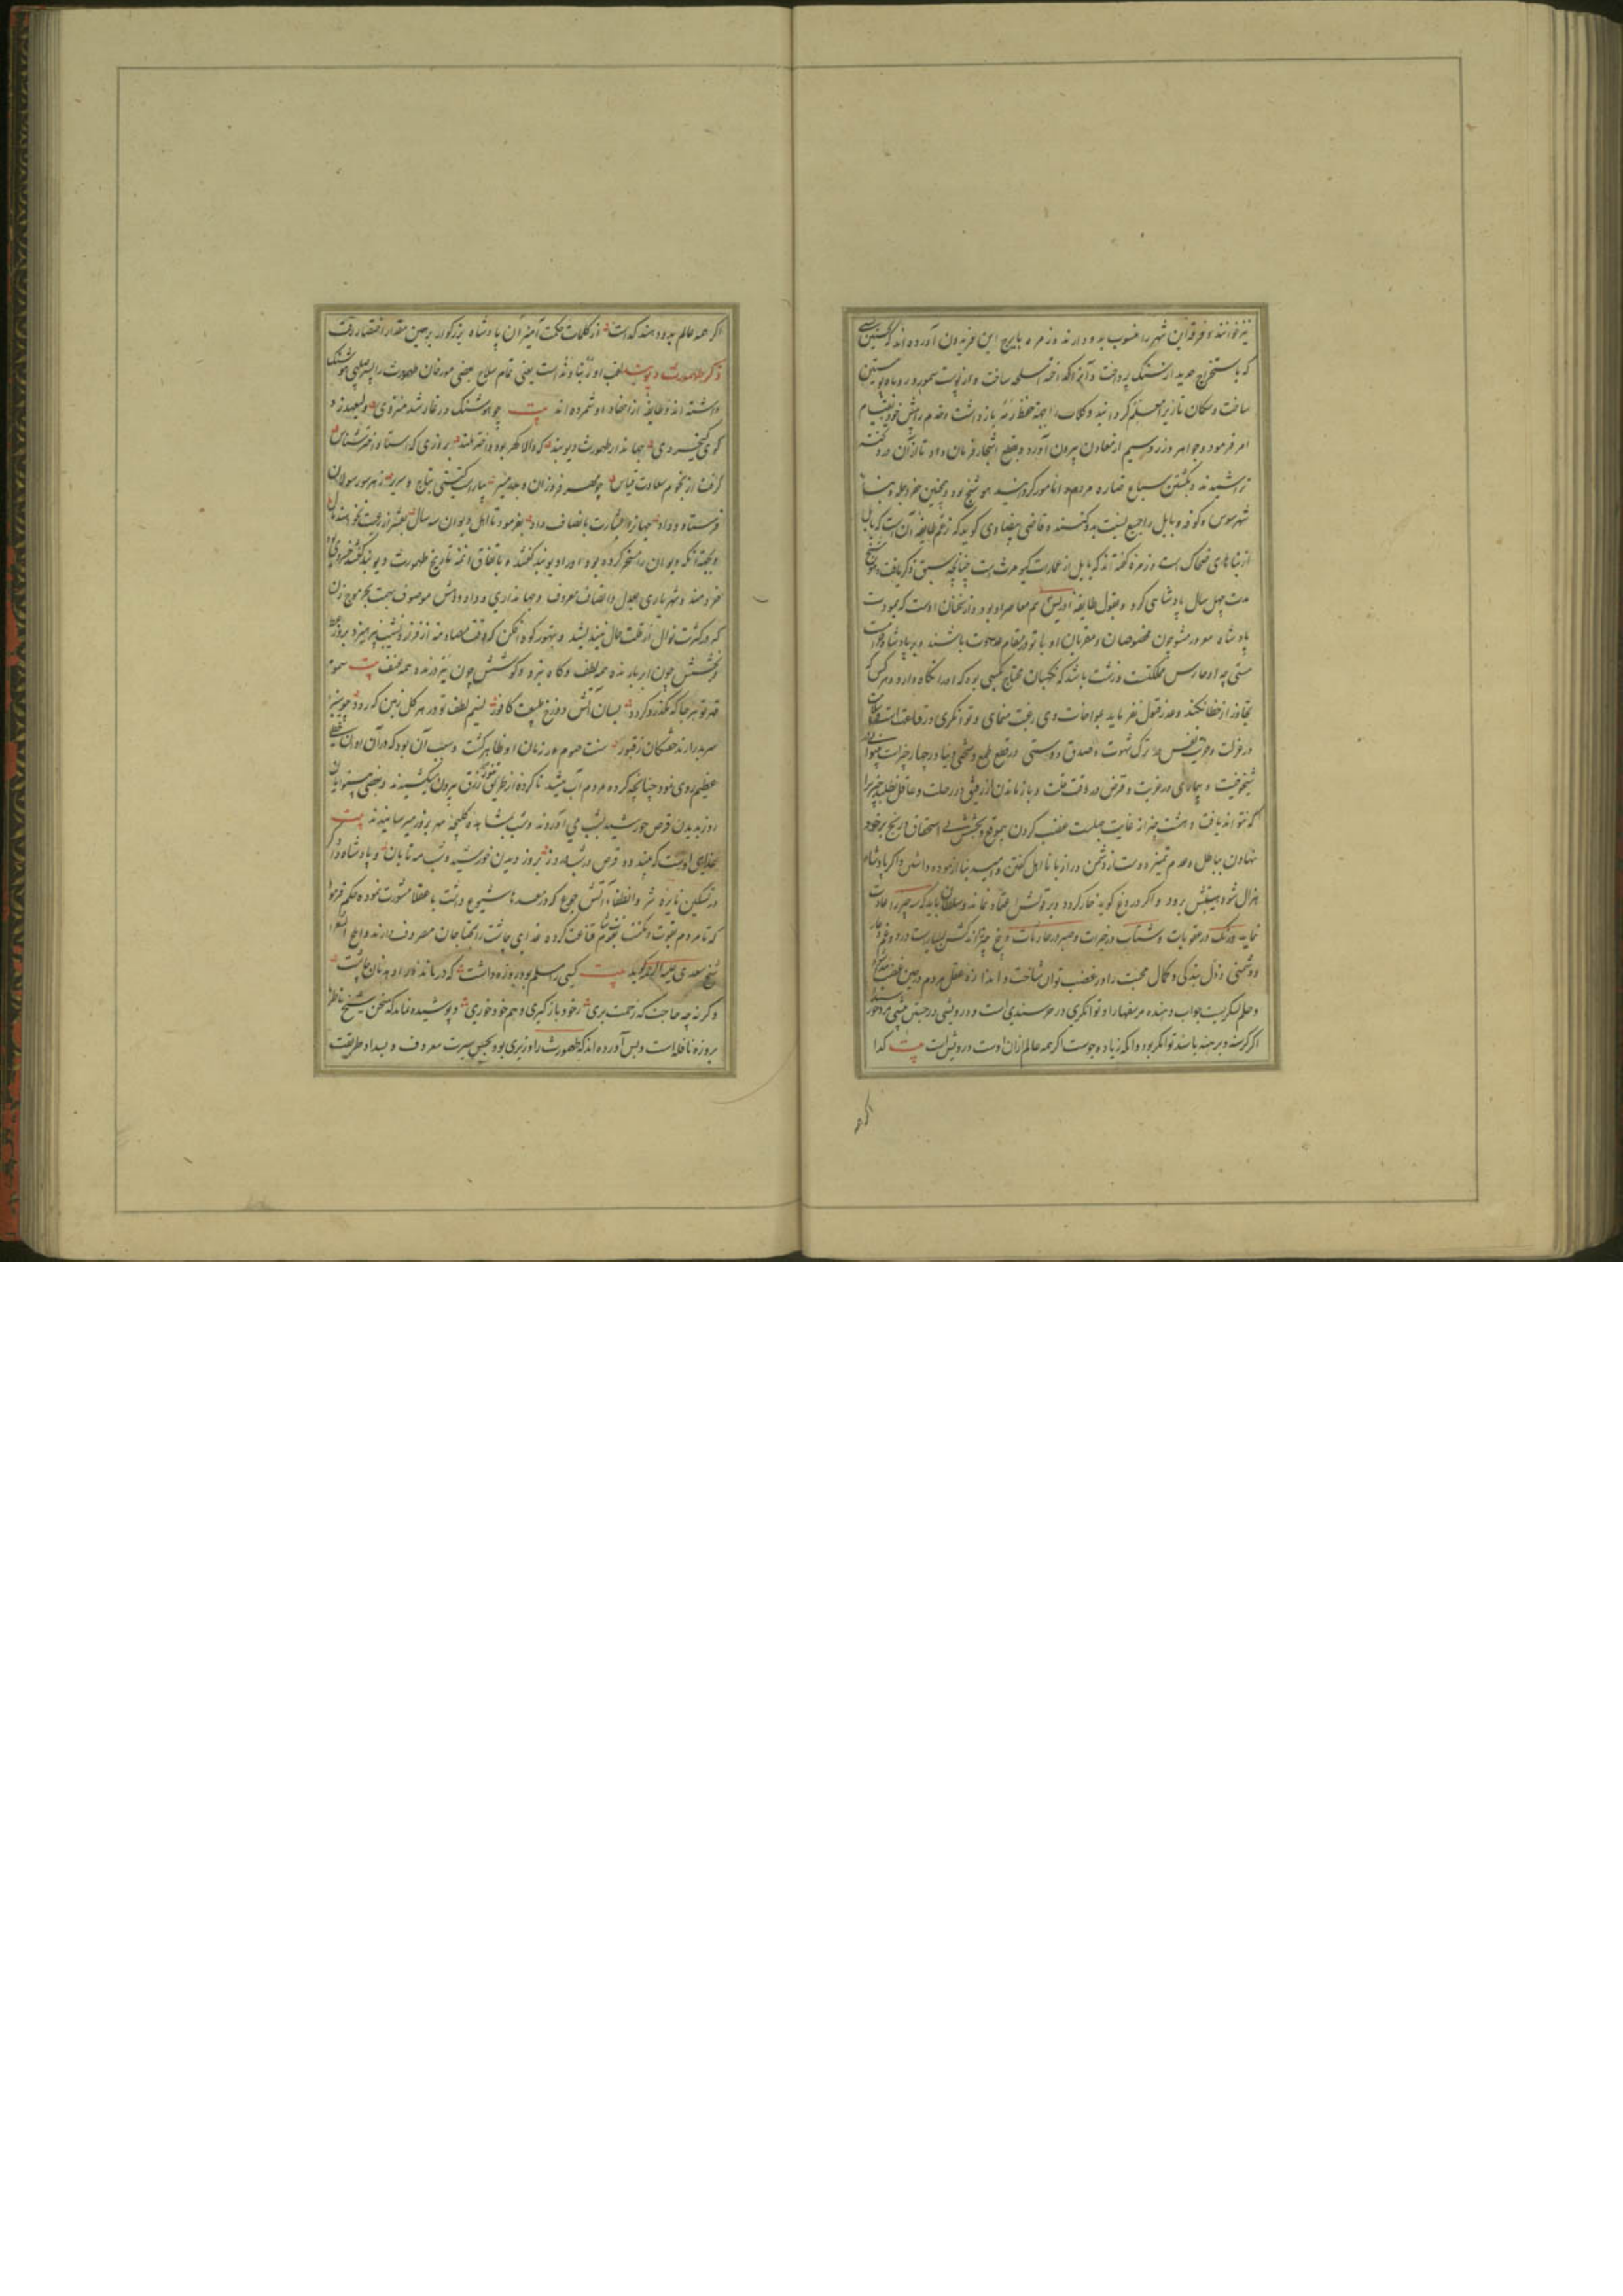 نیز خوانند و فرقه این شهر را منسوب بدو دارند و زمره بایرج ابن فریدون آورده اند که نخستین کسی
که باستخراج حدید از سنگ پرداخت و آنرا گداخته اسلحه ساخت و از پوست سمور و روباه پوستین
ساخت و سکان تازیرا معلم گردانید و کلاب را بجهة حفظ رمه بازداشت و مردم را بش خود بقیام
امر فرمود و جواهر و زر و سیم از معادن بیرون آورد و بقطع اشجار فرمان داد تا از آن در و تخته
تراشیدند و بکشتن سباع ضاره مردم را مامور گردانید هوشنج بود و همچنین
شهر سوس و کوفه و بابل را جمیع نسبت بدو کنند و قاضی بیضاوی گوید که زعم طایفه آن است که بابل
از بناهای ضحاک است و زمره گفته اند که بابل از عمارت کیومرث است چنانچه سبق ذکر یافت هوشنج
مدت چهل سال پادشاهی کرد و بقول طایفه ادریس هم معاصر او بود و از سخنان اوست که
پادشاه مغرور مشو چون مخصوصان و مقربان او با تو در مقام باشند و بر پادشاه
مستی چه او حارس مملکتت و زشت باشد که نگهبان محتاج کسی بود که او را نگاه دارد و هر کس که
تجاوز از خطا نکند و عذر قبول نفرماید بمواخات وی رغبت منمای و توانگری در قناعت است و سلامت
در عزلت و حریت نفس در ترک شهوت و صدق دوستی در قطع طمع و سختی دنیا در چهار چیز است
شیخوخیت و بیماری در غربت و قرض در وقت قلت و بازماندن از رفیق در رحلت و عاقل نطلبد چیزیرا
که نتواند یافت و هشت چیز از غایت جهلست غضب کردن بیموقع و بخشش بی استحقاق و رنج بر خود
نهادن بباطل و عدم تمیز دوست از دشمن و راز با نااهل گفتن و امید بنا آزموده داشتن و اگر پادشاه
هزال شود هیبتش برود و اگر دروغ گوید خار گردد و بر قولش اعتماد نماند و سلطان باید که سه چیز را عادت
نماید درنگ در عقوبات و شتاب در خیرات و صبر در حادثات و پنج چیز اندکش بسیارست درد و غم و عار
و دشمنی و ذل بندگی و کمال محبت را در غضب توان شناخت و اندازه عقل مردم در حین غضب
و حلم لنگریست جواب دهنده مر سفیهان را و توانگری در خرسندی است و درویشی در جستن بیشی مرد خورسند
اگر گرسنه و برهنه باشد توانگر بود و آنکه زیاده جوست اگر همه عالم از آن اوست درویش است بیت گدا
اگر همه
اگر همه عالم بدو دهند گداست از کلمات حکمت آمیز آن پادشاه بزرگوار برین مقدار اختصار رفت
ذکر طهمورث دیوبند لقب او زیناوند است یعنی تمام سلاح بعضی مورخان طهمورث را پسر صلبی هوشنگ
داشته اند و طایفه از احفاد او شمرده اند بیت چو هوشنگ در غار شد منزوی ولیعهد
کوی کیخسروی جهاندار طهمورث دیوبند که والا گهر بود و اختر بلند بروزی که استاد اختر شناس
گرفت از نجوم سعادت قیاس چو مهر فروزان و بدر منیر بیاراست گیتی بتاج و سریر بهر سو رسولان
فرستاد و داد جهانرا بشارت بانصاف و داد بفرمود تا اهل دیوان سه سال بعشر از رعیت نخواهند مال
و بجهة آنکه دیوان را مسخر کرده بود او را دیوبند گفتند و باتفاق ائمه تاریخ طهمورث دیوبند گفتند خسروی بود
خردمند و شهریاری بعدل و انصاف معروف و جهانداری و داد و دهش موصوف بهمت بحر موج زن
که در کثرت نوال از قلت مال نیندیشد و بتهور کوه افکن که وقت مصادمه از فراز و نشیب نپرهیزد
و بخشش چون ابر بارنده همه لطف و گاه نبرد و کوشش چون نیز درنده همه عنف بیت سموم
قهر تو هر جا که بگذرد گردد بسان آتش دوزخ طبیعت کافور نسیم لطف تو در هر گل زمین که رود چو سبزه
سر بدر آرند خفتگان ز قبور سنت صوم در زمان او ظاهر گشت و سبب آن بود که در آن اوان قحطی
عظیم روی نمود چنانچه گرده مردم آب میشد تا گرده از طریق تنور رزق بیرون میکشیدند و بعضی بینوایان
روز بدیدن قرص خورشید بشب می آوردند و شب بمشاهده کلیچه مه بروز میرسانیدند بیت
غذای اوست که بیند دو قرص در شبانروز بروز دیدن خورشید و شب مه تابان و پادشاه دادگر
در تسکین نایره شر و انطفاء آتش جوع که در معده ها شیوع داشت با عقلا مشورت نموده حکم فرمود
که تا مردم بقوت و مکنت بقوت شام قناعت کرده غذای چاشت را بمحتاجان مصروف دارند و املح الشعرا
شیخ سعدی علیه الرحمه گوید بیت کسی را مسلم بود روزه داشت که درمانده را دهد نان چاشت
وگرنه چه حاجت که زحمت بری ز خود بازگیری و هم خود خوری و پوشیده نماند که سخن شیخ ناظر
بروزه نافله است و بس آورده اند که طهمورث را وزیری بود بحسن سیرت معروف و بسداد طریقت